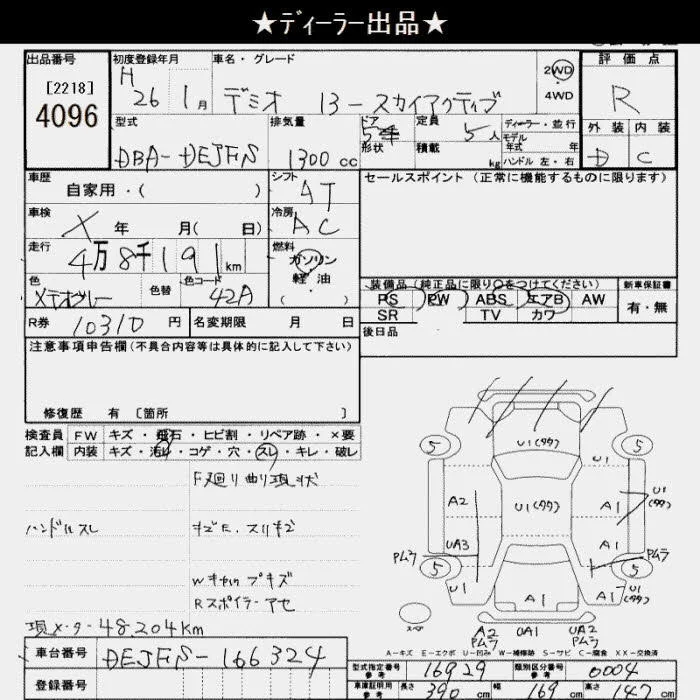 ★ディーラー出品★
出品番号 初度登録年月 車名・グレード 2WD 評価点
[2218] H 26 1月 デミオ 13-スカイアクティブ 4WD R
4096 型式 排気量 ドア 定員 ディーラー・並行 外装 内装
DBA-DEJFS 1300cc 5 形状 5人 積載 kg モデル年式 年 ハンドル 左・右 D C
車歴 自家用・( ) シフト AT セールスポイント(正常に機能するものに限ります)
車検 X 年 月( 日) 冷房 AC
走行 4万8千191km 燃料 ガソリン
軽・油
色 メテオグレー 色替 色コード 42A ( )
装備品(純正品に限り○をつけてください) 新車保証書
PS PW ABS エアB AW 有・無
SR TV カワ
R券 10310円 名変期限 月 日 後日品
注意事項申告欄(不具合内容等は具体的に記入して下さい)
修復歴 有 [箇所 ]
検査員 FW キズ・飛石・ヒビ割・リペア跡・×要
記入欄 内装 キズ・汚れ・コゲ・穴・スレ・キレ・破レ
F廻り曲り現状
ハンドルスレ
Wキャップキズ
Rスポイラーアセ
現メーター48204km
5 U1(タタ) 5
U1
A2 U1(タタ) A1 U1(タタ)
UA3 A1
PMワ PMワ
5 5
U1 A1 A1
スペア
A2 UA1 UA2
PMワ PMワ
A-キズ E-エクボ U-凹み W-補修跡 S-サビ C-腐食 XX-交換済
車台番号 DEJFS-166324
登録番号
型式指定番号 参考 16929 類別区分番号 参考 0004
車庫証明用 参考 長さ 390cm 幅 169cm 高さ 147cm